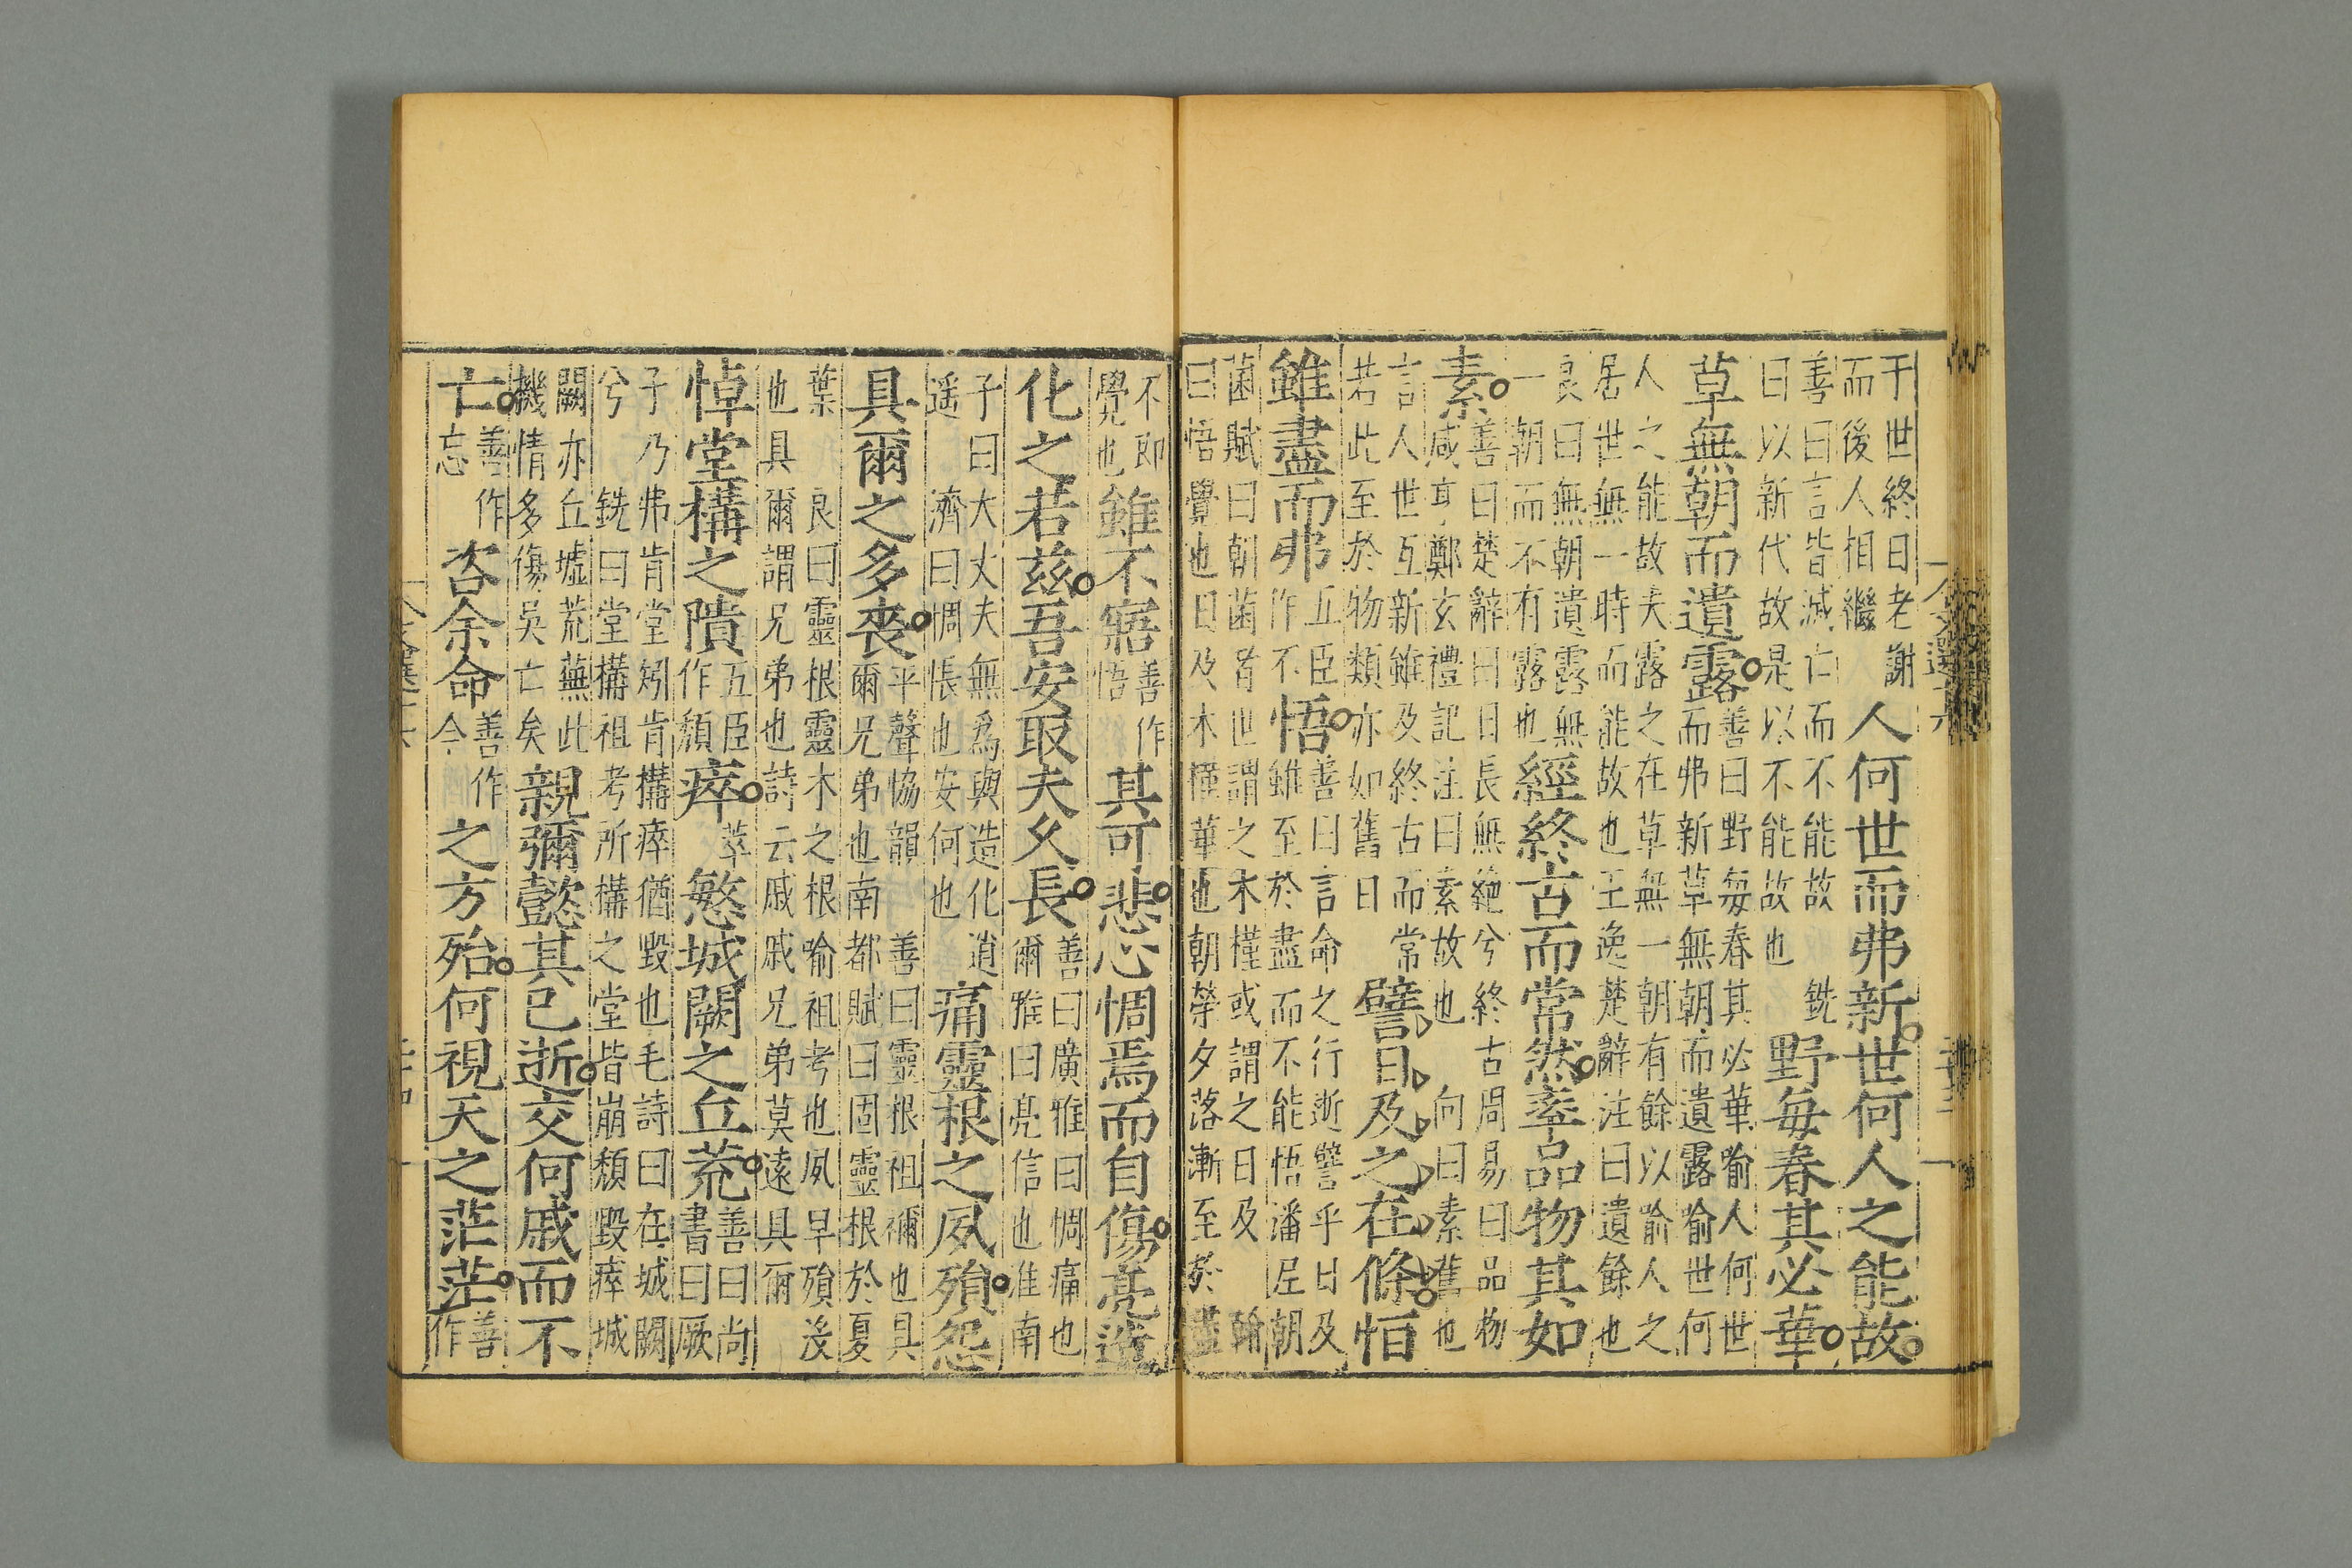 于世終日老謝
而後人相繼
人何世而弗新世何人之能故
善曰言皆滅亡而不能故 銑
曰以新代故是以不能故也
野每春其必華
草無朝而遺露
善曰野每春其必華喻人何世
而弗新草無朝而遺露喻世何
人之能故夫露之在草無一朝有餘以喻人之
居世無一時而能故也王逸楚辭注曰遺餘也
良曰無朝遺露無
一朝而不有露也
經終古而常然率品物其如
素
善曰楚辭曰日長無絶兮終古周易曰品物
咸亨鄭玄禮記注曰素故也 向曰素舊也
言人世互新雖及終古而常
若此至於物類亦如舊日
譬日及之在條恒
雖盡而弗
五臣
作不
悟
善曰言命之行逝譬乎日及
雖至於盡而不能悟潘尼朝
菌賦曰朝菌者世謂之木槿或謂之日及 翰
曰悟覺也日及木槿華也朝榮夕落漸至於盡
不即
覺也
雖不寤
善作
悟
其可悲心惆焉而自傷亮造
化之若茲吾安取夫久長
善曰廣雅曰惆痛也
爾雅曰亮信也淮南
子曰大丈夫無爲與造化逍
遥 濟曰惆悵也安何也
痛靈根之夙殞怨
具爾之多喪
平聲協韻 善曰靈根祖禰也具
爾兄弟也南都賦曰固靈根於夏
葉 良曰靈根靈木之根喻祖考也夙早殞沒
也具爾謂兄弟也詩云戚戚兄弟莫遠具爾
悼堂構之隤
五臣
作頹
瘁
萃
慜城闕之丘荒
善曰尚
書曰厥
子乃弗肯堂矧肯構瘁猶毀也毛詩曰在城闕
兮 銑曰堂構祖考所構之堂皆崩頹毀瘁城
闕亦丘墟荒蕪此
機情多傷吳亡矣
親彌懿其已逝交何戚而不
亡
善作
忘
咨余命
善作
今
之方殆何視天之茫茫
善
作